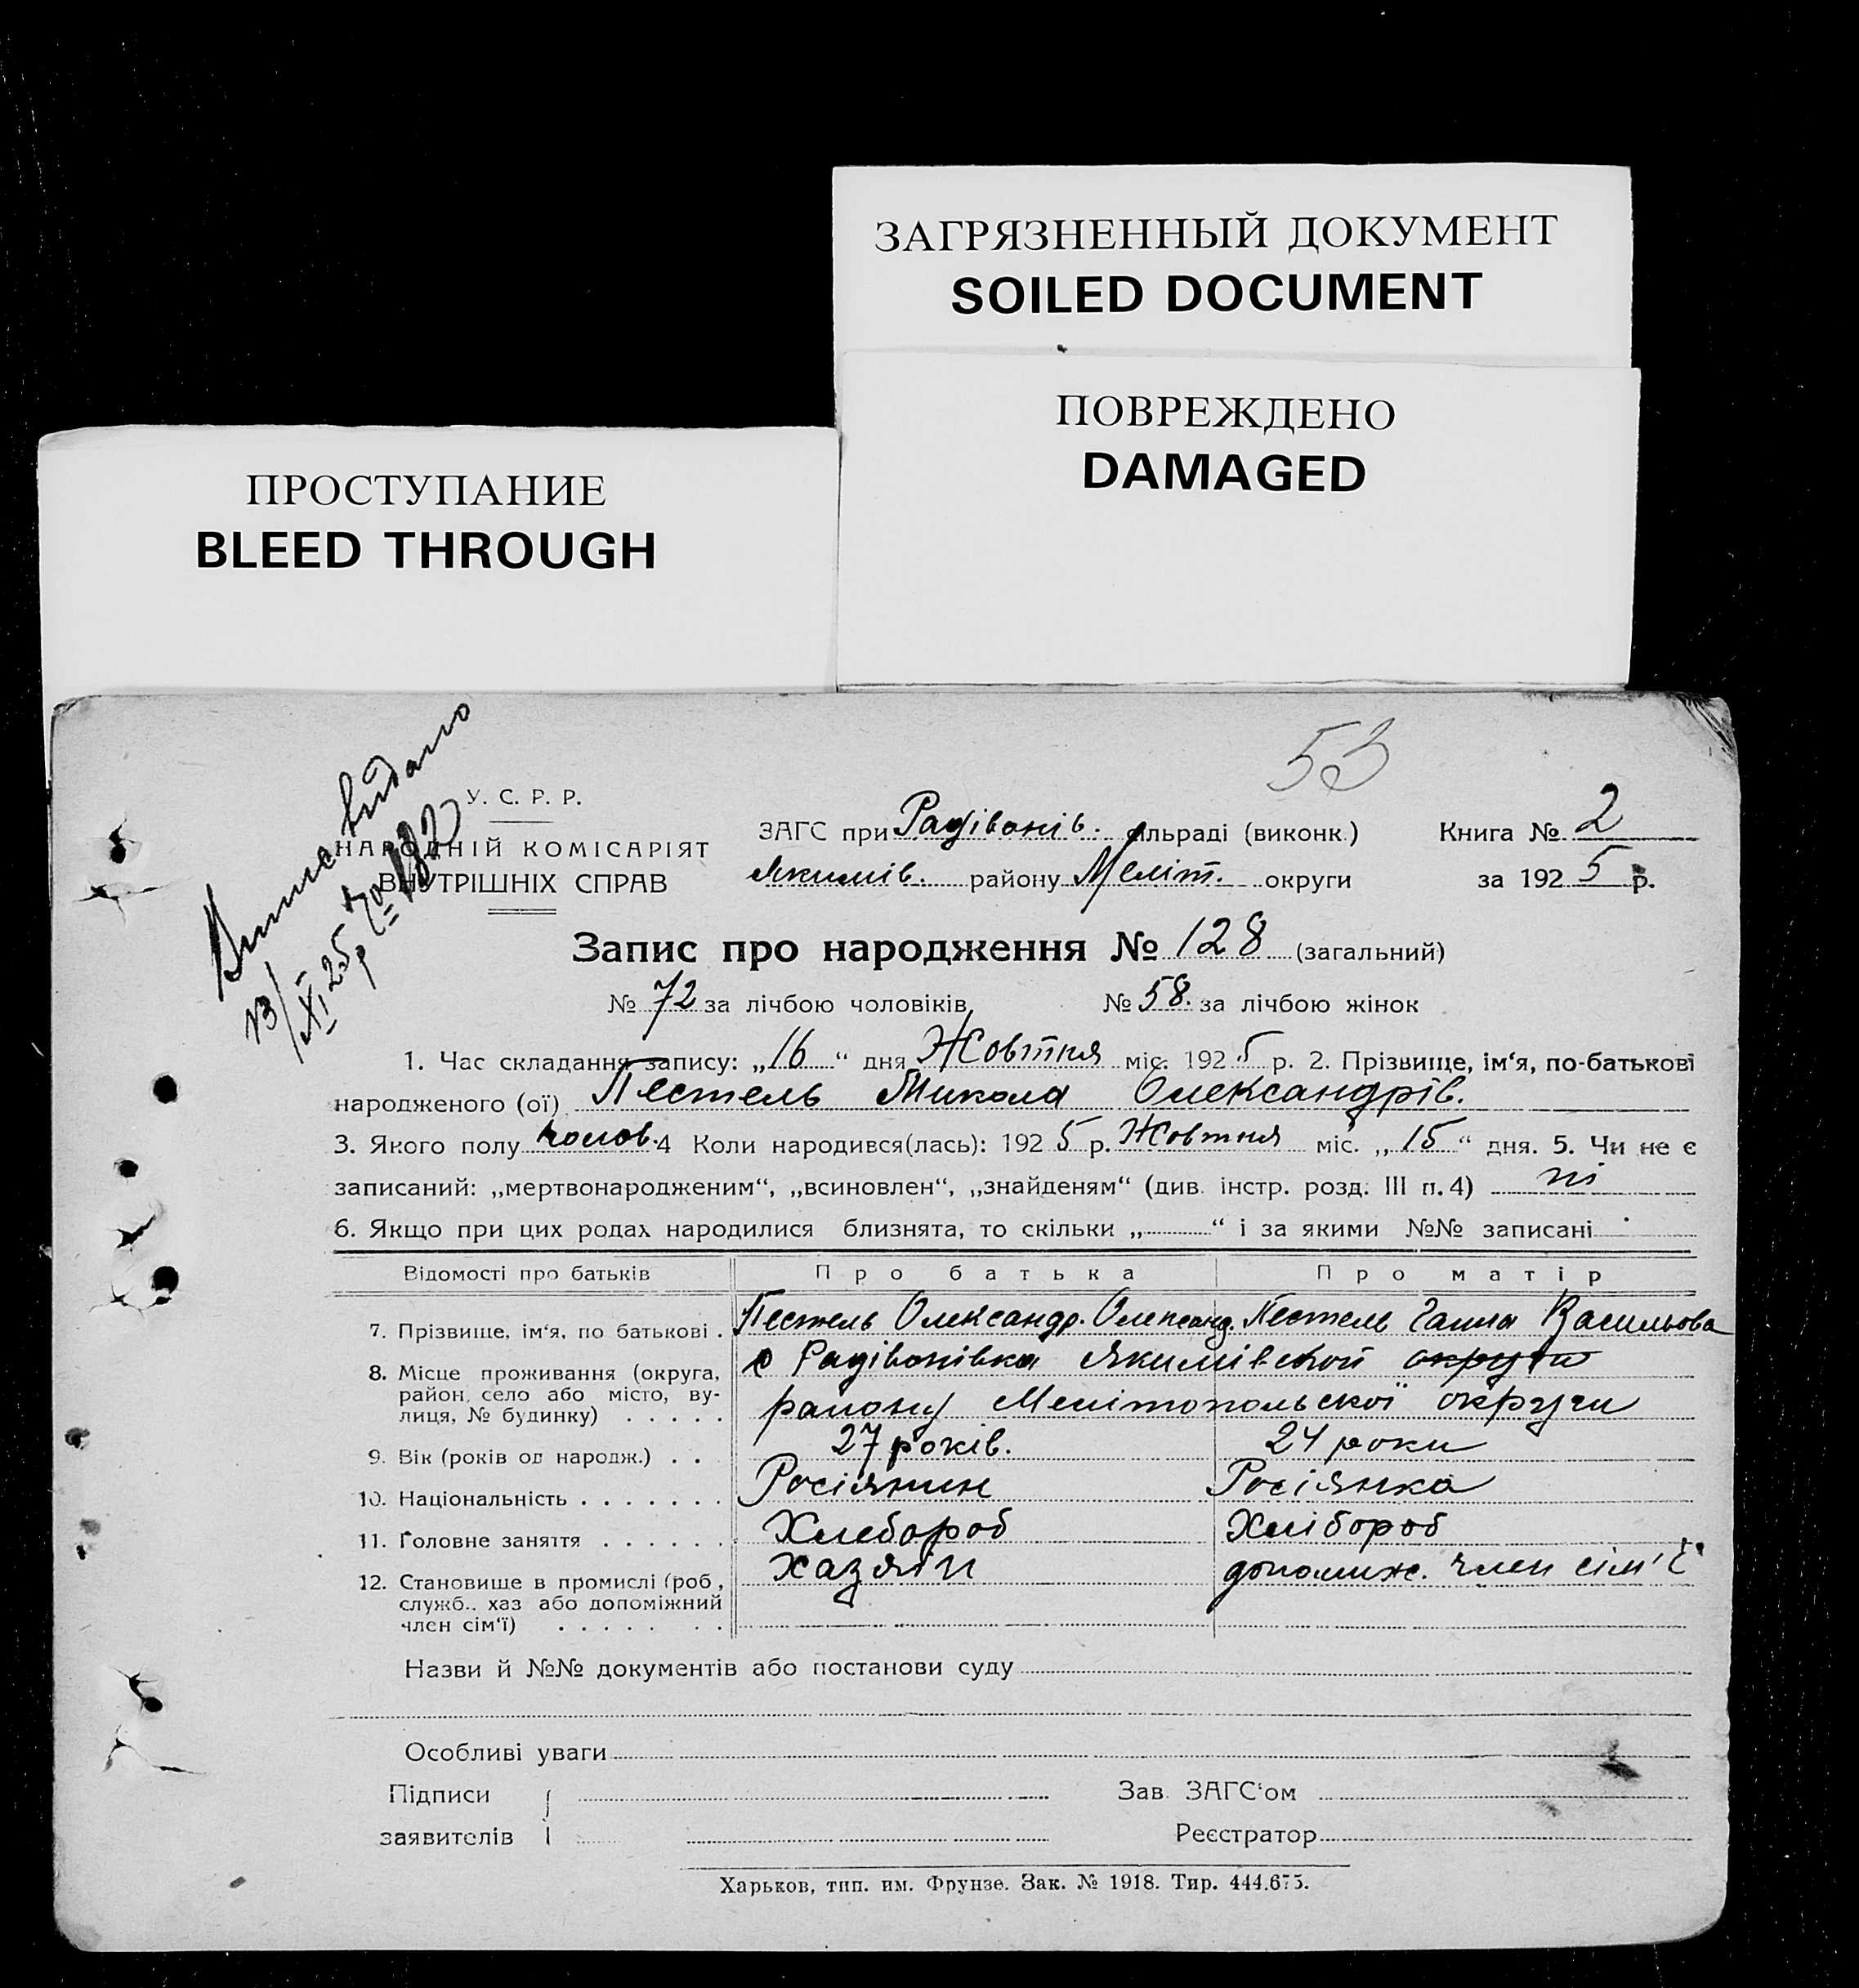 ЗАГРЯЗНЕННЫЙ ДОКУМЕНТ
SOILED DOCUMENT
ПОВРЕЖДЕНО
DAMAGED
ПРОСТУПАНИЕ
BLEED THROUGH
53
Виписв видано
13/XI 25р № 182
У. С. Р. Р.
НАРОДНІЙ КОМІСАРІЯТ
ВНУТРІШНІХ СПРАВ
ЗАГС при Радівонів. сільраді (виконк.) Книга № 2
Якимів. району Меліт. округи за 1925 р.
Запис про народження № 128 (загальний)
№ 72 за лічбою чоловіків № 58. за лічбою жінок
1. Час складання запису: „16“ дня Жовтня міс. 1925 р. 2. Прізвище, ім‘я, по-батькові
народженого (ої) Пестель Микола Олександрів.
3. Якого полу чолов. 4 Коли народився(лась): 1925 р. Жовтня міс. „15“ дня. 5. Чи не є
записаний: „мертвонародженим“, „всиновлен“, „знайденям“ (див. інстр. розд. III п. 4) ні
6. Якщо при цих родах народилися близнята, то скільки „ “ і за якими №№ записані
Відомості про батьків Про батька Про матір
7. Прізвище, ім‘я, по батькові . Пестель Олександр. Олександ. Пестель Ганна Васильова
8. Місце проживання (округа, с Радівонівка Якимівской округи
район, село або місто, ву-
лиця, № будинку) . . . . . району Мелітопольської округи
9. Вік (років од народж.) . . 27 років. 24 роки
10. Національність . . . . . . . Росіянин Росіянка
11. Головне заняття . . . . . . Хлебороб Хлібороб
12. Становище в промислі (роб., хазяїн допоміж. член сім'ї
служб., хаз або допоміжний
член сім‘ї) . . . . . . .
Назви й №№ документів або постанови суду
Особливі уваги
Підписи Зав. ЗАГС‘ом
заявителів Реєстратор
Харьков, тип. им. Фрунзе. Зак. № 1918. Тир. 444.675.